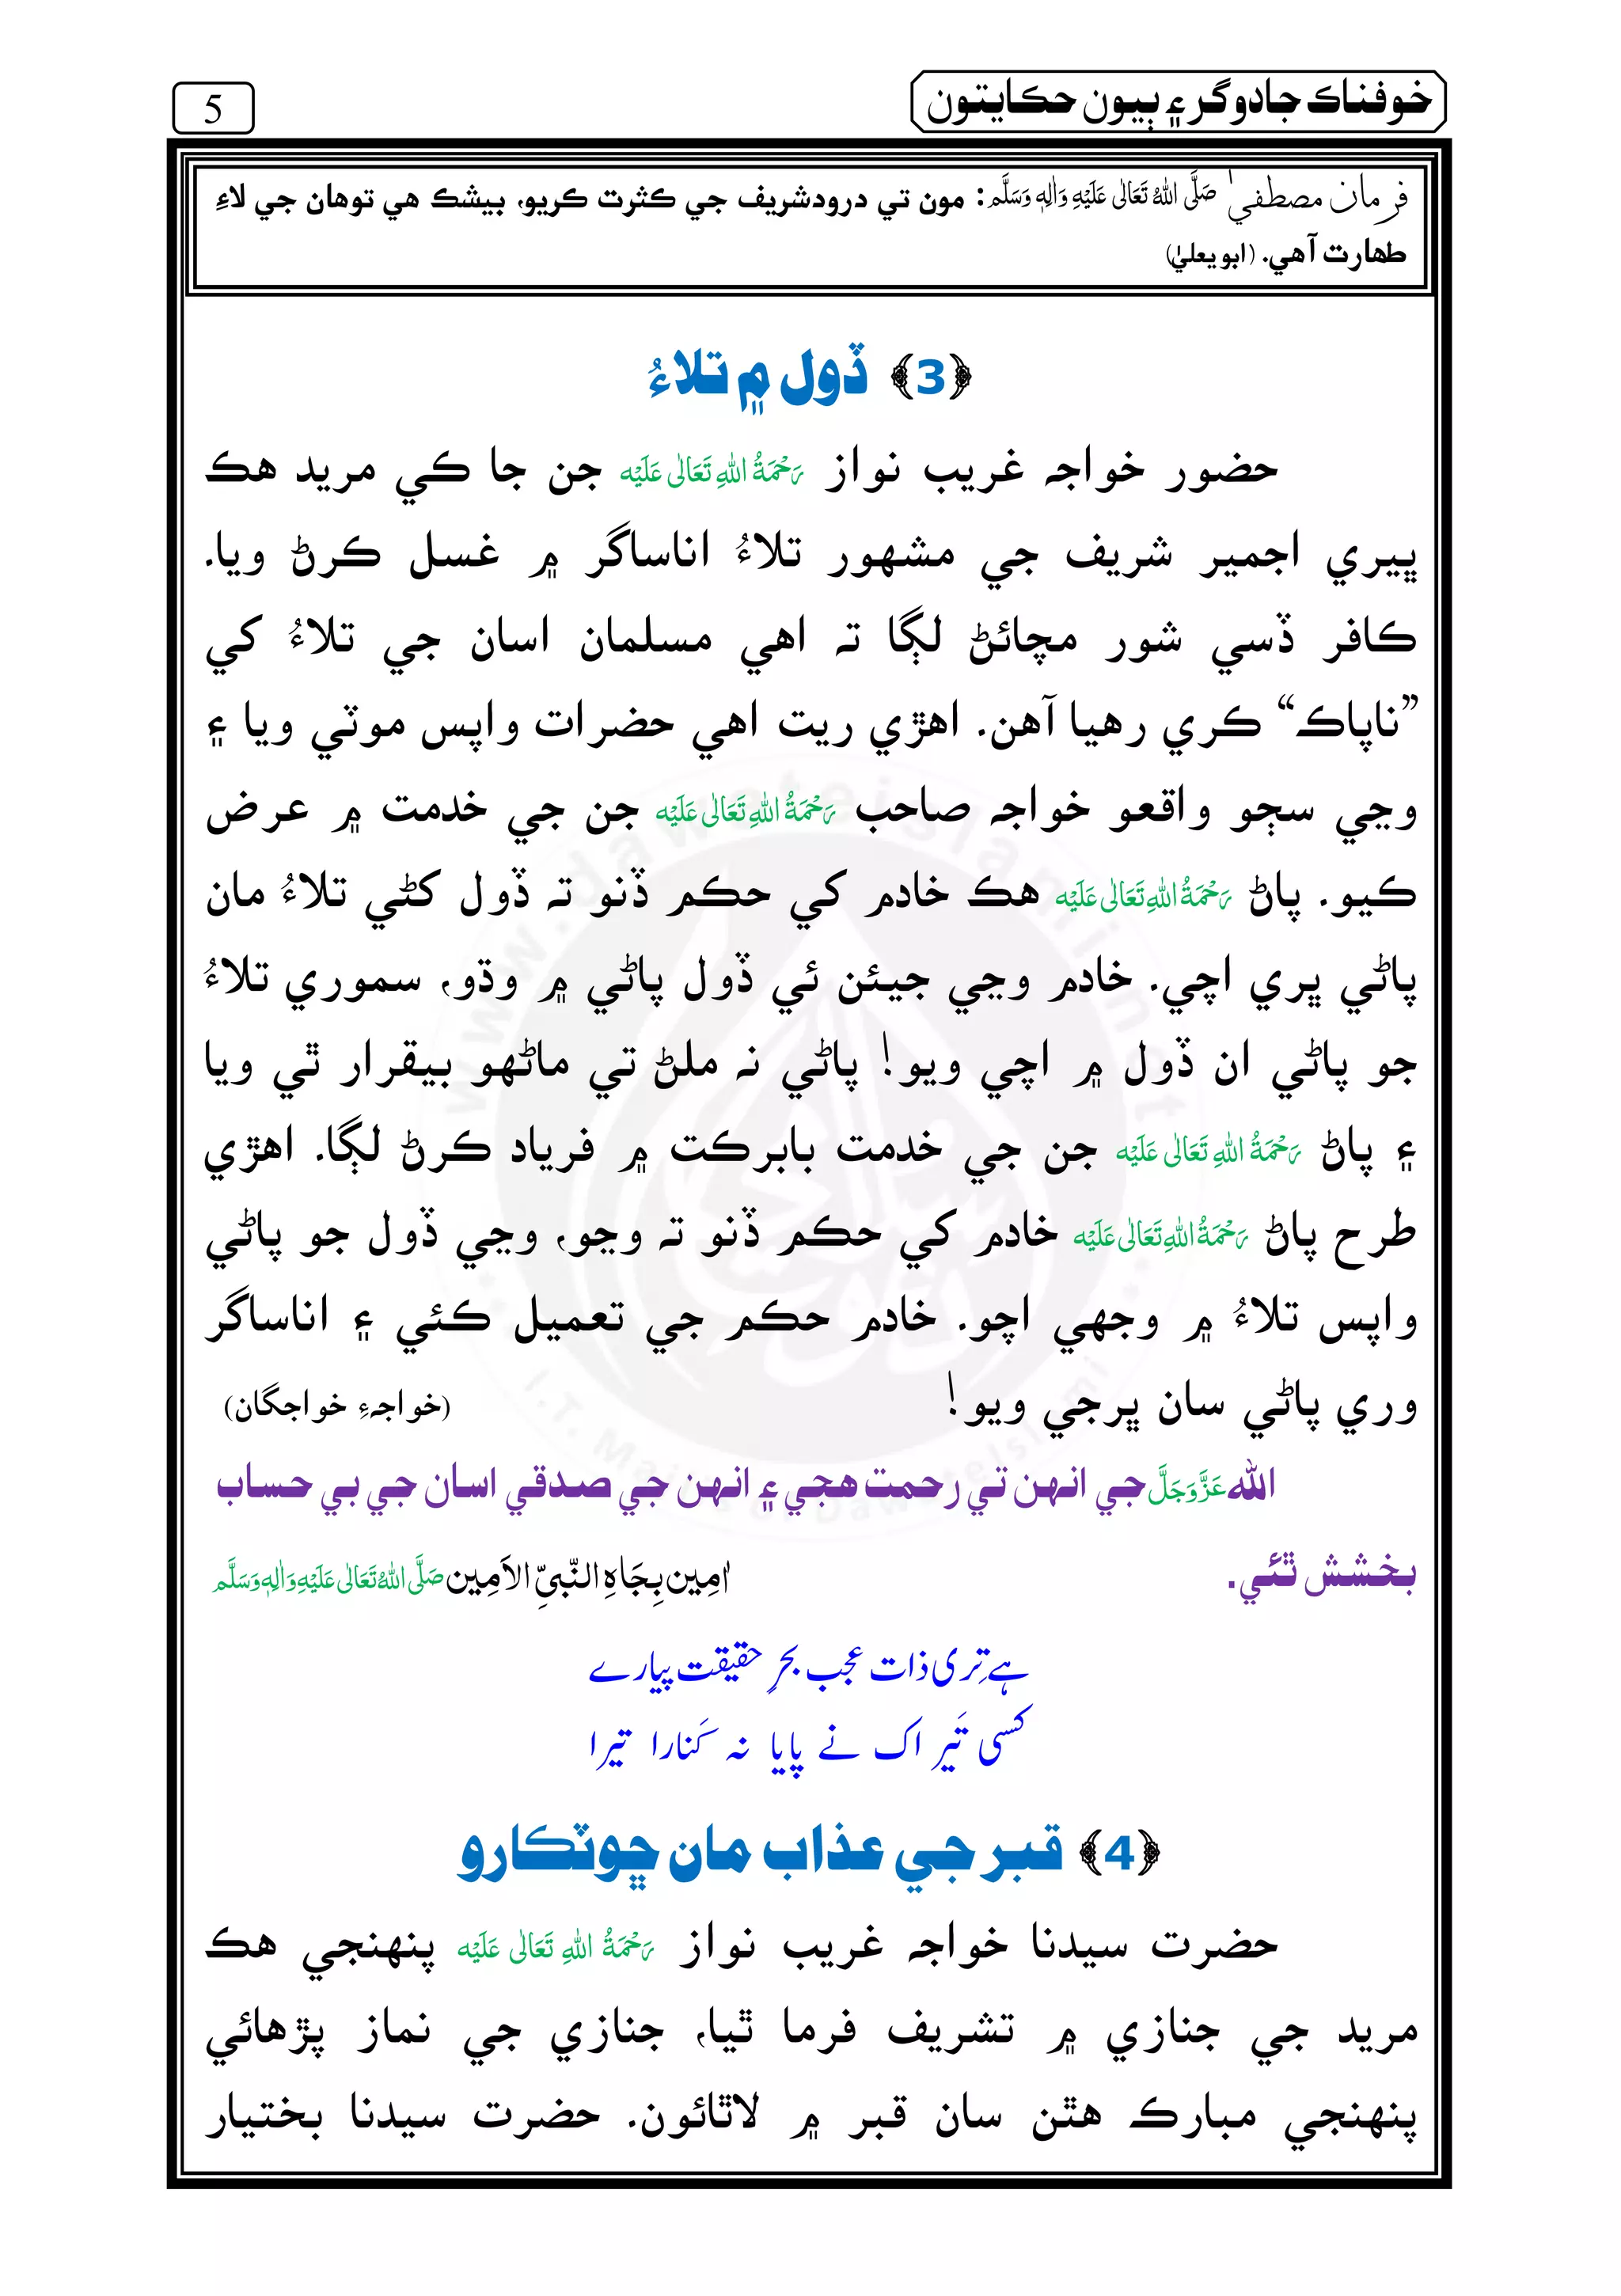 خوفناڪ جادوگر ۽ ٻيون حڪايتون
5
فرمان مصطفيٰ صَلَّى اللهُ تَعَالٰى عَلَيْهِ وَاٰلِهٖ وَسَلَّم: مون تي درودشريف جي ڪثرت ڪريو، بيشڪ هي توهان جي لاءِ
طهارت آهي. (ابو يعليٰ)
﴿3﴾ ڏول ۾ تلاءُ
حضور خواجہ غريب نواز رَحْمَةُ اللهِ تَعَالٰى عَلَيْه جن جا ڪي مريد هڪ
ڀيري اجمير شريف جي مشهور تلاءُ اناساگر ۾ غسل ڪرڻ ويا.
ڪافر ڏسي شور مچائڻ لڳا تہ اهي مسلمان اسان جي تلاءُ کي
”ناپاڪ“ ڪري رهيا آهن. اهڙي ريت اهي حضرات واپس موٽي ويا ۽
وڃي سڄو واقعو خواجہ صاحب رَحْمَةُ اللهِ تَعَالٰى عَلَيْه جن جي خدمت ۾ عرض
ڪيو. پاڻ رَحْمَةُ اللهِ تَعَالٰى عَلَيْه هڪ خادم کي حڪم ڏنو تہ ڏول کڻي تلاءُ مان
پاڻي ڀري اچي. خادم وڃي جيئن ئي ڏول پاڻي ۾ وڌو، سموري تلاءُ
جو پاڻي ان ڏول ۾ اچي ويو! پاڻي نہ ملڻ تي ماڻهو بيقرار ٿي ويا
۽ پاڻ رَحْمَةُ اللهِ تَعَالٰى عَلَيْه جن جي خدمت بابرڪت ۾ فرياد ڪرڻ لڳا. اهڙي
طرح پاڻ رَحْمَةُ اللهِ تَعَالٰى عَلَيْه خادم کي حڪم ڏنو تہ وڃو، وڃي ڏول جو پاڻي
واپس تلاءُ ۾ وجهي اچو. خادم حڪم جي تعميل ڪئي ۽ اناساگر
وري پاڻي سان ڀرجي ويو! (خواجہءِ خواجگان)
الله عَزَّوَجَلَّ جي انهن تي رحمت هجي ۽ انهن جي صدقي اسان جي بي حساب
بخشش ٿئي. اٰمِين بِجَاهِ النَّبِيِّ الْاَمِين صَلَّى اللهُ تَعَالٰى عَلَيْهِ وَاٰلِهٖ وَسَلَّم
ہے تِری ذات عجب بحرِ حقیقت پیارے
کسی تَیراک نے پایا نہ کَنارا تیرا
﴿4﴾ قبر جي عذاب مان ڇوٽڪارو
حضرت سيدنا خواجہ غريب نواز رَحْمَةُ اللهِ تَعَالٰى عَلَيْه پنهنجي هڪ
مريد جي جنازي ۾ تشريف فرما ٿيا، جنازي جي نماز پڙهائي
پنهنجي مبارڪ هٿن سان قبر ۾ لاٿائون. حضرت سيدنا بختيار
www.dawateislami.net
I.T. Majlis of DawateIslami